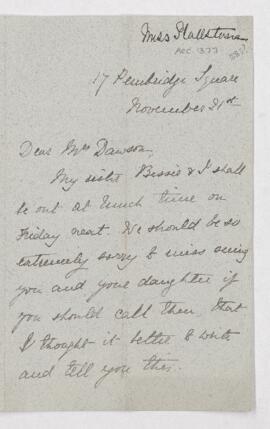 Miss
ACC 1377
17 Pembridge Square
November 21st.
Dear Mrs Dawson,
My sister Bessie & I shall
be out at lunch time on
Friday next. We should be so
extremely sorry to miss seeing
you and your daughter if
you should call then, that
I thought it better to write
and tell you this.